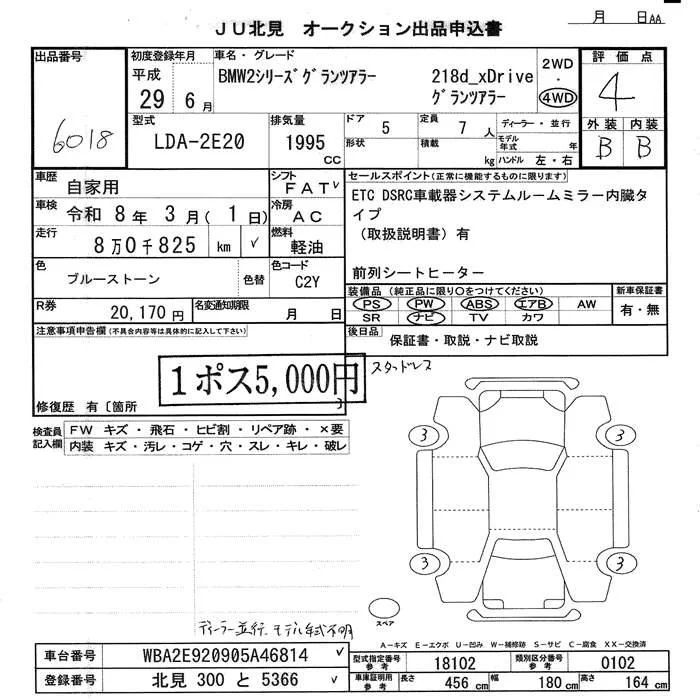 月 日AA
JU北見 オークション出品申込書
出品番号
6018
初度登録年月
平成
29 6月
車名・グレード
BMW2シリーズグランツアラー 218d_xDrive
グランツアラー
2WD
・
4WD
評価点
4
外装 内装
B B
型式
LDA-2E20
排気量
1995
CC
ドア
5
定員
7人
形状
積載
kg
ディーラー・並行
モデル年式 年
ハンドル 左・右
車歴
自家用
シフト
FAT ✓
車検
令和 8年 3月(1日)
冷房
AC
走行
8万0千825 km ✓
燃料
軽油
色
ブルーストーン
色替
色コード
C2Y
R券
20,170円
名変通知期限
月 日
セールスポイント(正常に機能するものに限ります)
ETC DSRC車載器システムルームミラー内臓タ
イプ
(取扱説明書)有
前列シートヒーター
装備品(純正品に限り○をつけてください)
PS PW ABS エアB AW
SR ナビ TV カワ
新車保証書
有・無
後日品
保証書・取説・ナビ取説
注意事項申告欄(不具合内容等は具体的に記入して下さい)
1ポス5,000円
修復歴 有〔箇所 〕
スタッドレス
検査員
記入欄
FW キズ・飛石・ヒビ割・リペア跡・×要
内装 キズ・汚レ・コゲ・穴・スレ・キレ・破レ
3 3
3 3
スペア
ディーラー並行、モデル年式不明
A-キズ E-エクボ U-凹み W-補修跡 S-サビ C-腐食 XX-交換済
車台番号
WBA2E920905A46814 ✓
登録番号
北見 300 と 5366 ✓
型式指定番号
参考
18102
類別区分番号
参考
0102
車庫証明用
参考
長さ 456 cm 幅 180 cm 高さ 164 cm